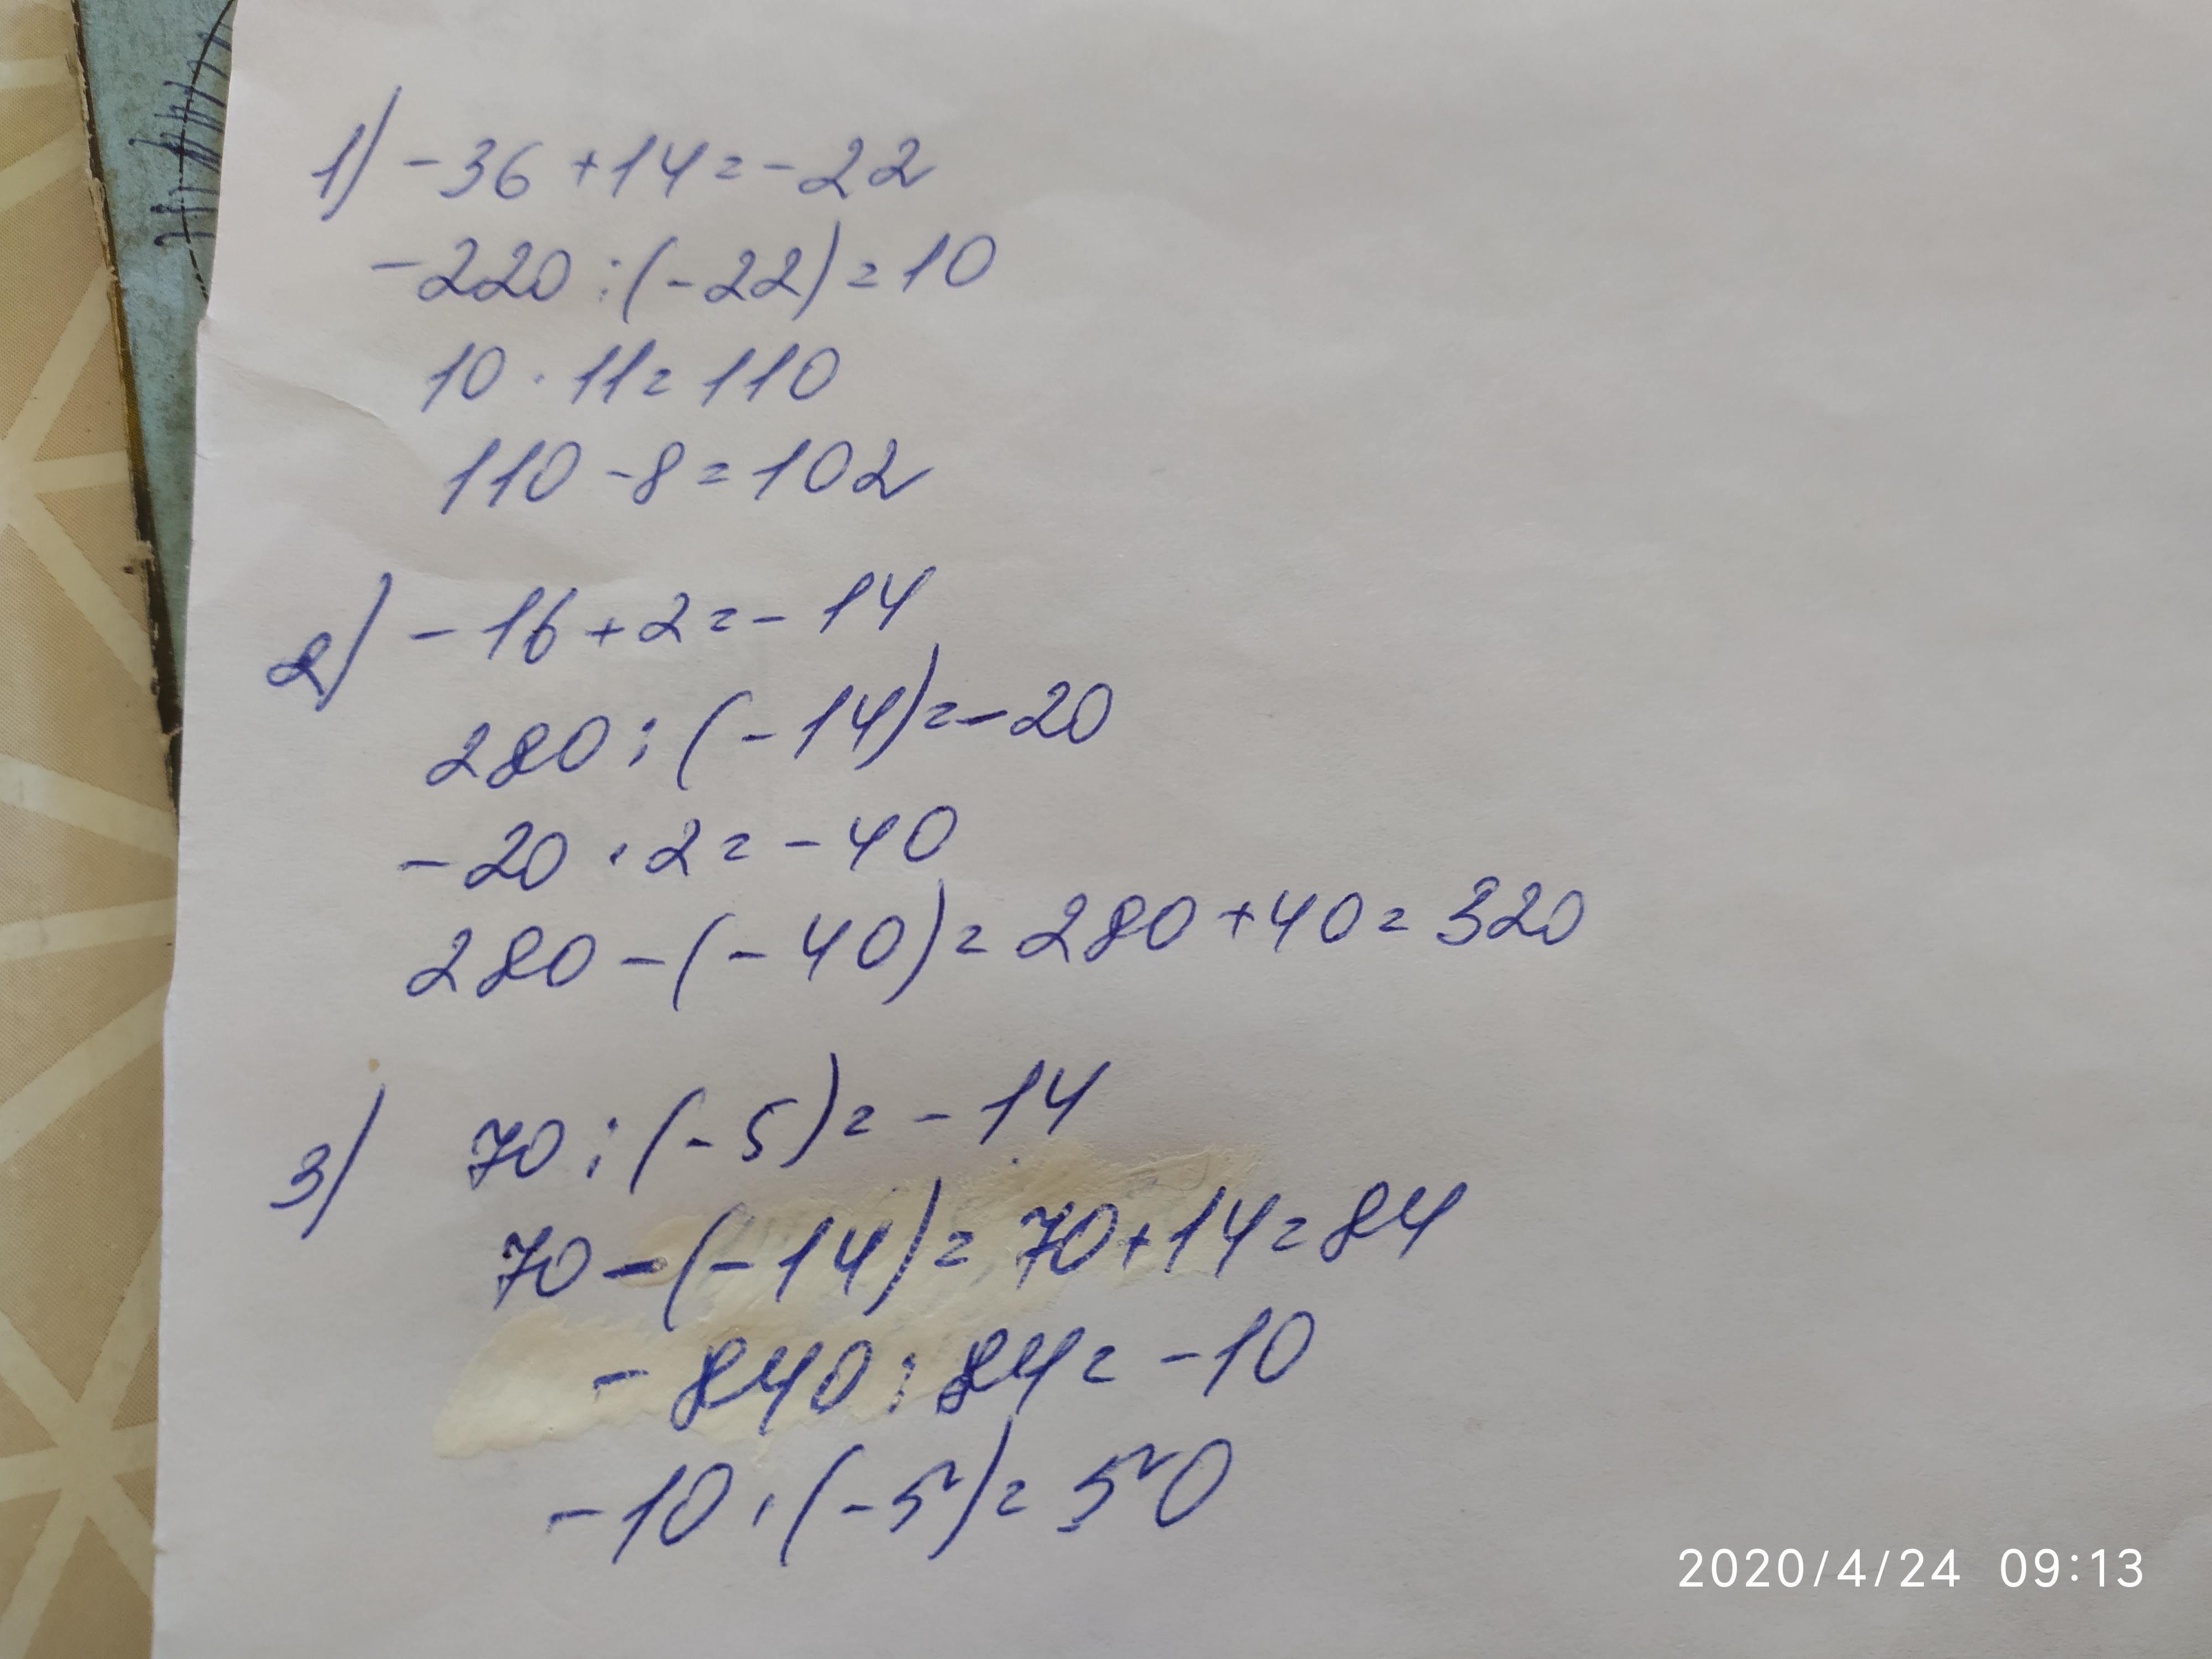 1) -36 +14 = -22
-220 : (-22) = 10
10 · 11 = 110
110 - 8 = 102
2) -16 + 2 = -14
280 : (-14) = -20
-20 · 2 = -40
280 - (-40) = 280 + 40 = 320
3) 70 : (-5) = -14
70 - (-14) = 70 + 14 = 84
-840 : 84 = -10
-10 · (-5) = 50
2020/4/24 09:13